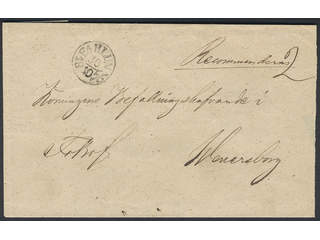 Recommenderas
2
Konungens Befallningshafvande i
Wenersborg